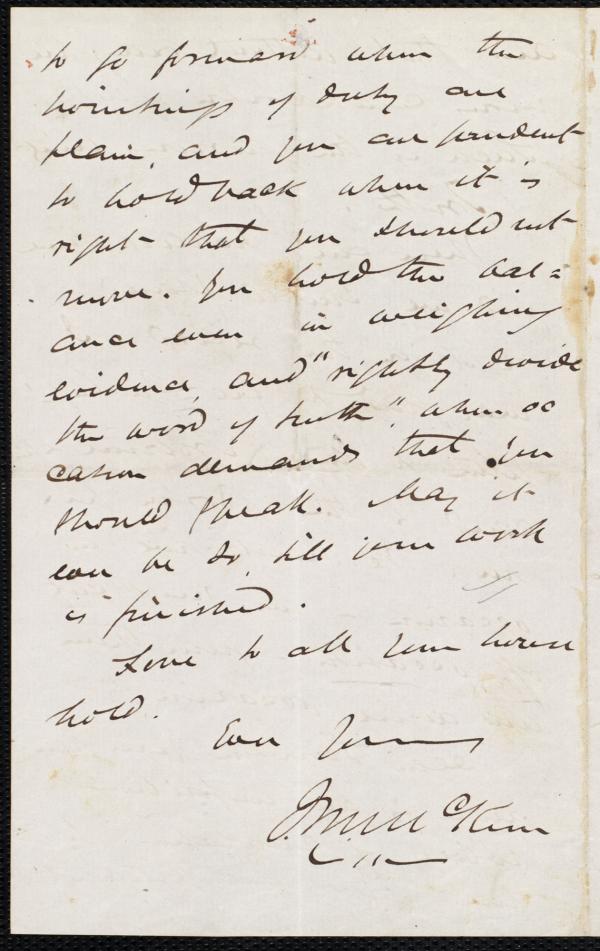 to go forward when the
pointings of duty are
plain, and you are prudent
to hold back when it is
right that you should not
move. You hold the bal=
ance even in weighing
evidence, and "rightly divide
the word of truth", when oc
casion demands that you
should speak. May it
ever be so, till your work
is finished.
Love to all your house
hold.
Ever Yours
J. M. McKim